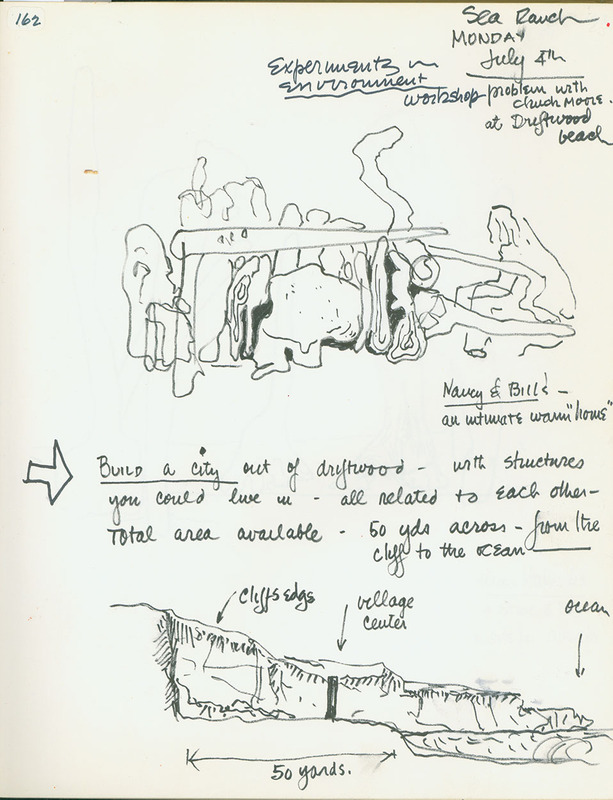 162
Sea Ranch
MONDAY
July 4th
Experiments in
environment
workshop-problem with
chuck Moore.
at Driftwood
beach
Nancy & Bill's -
an intimate warm "home"
BUILD a city out of driftwood - with structures
you could live in - all related to each other -
Total area available - 50 yds across - from the
cliff to the ocean
cliffs edge
village
center
ocean
50 yards.